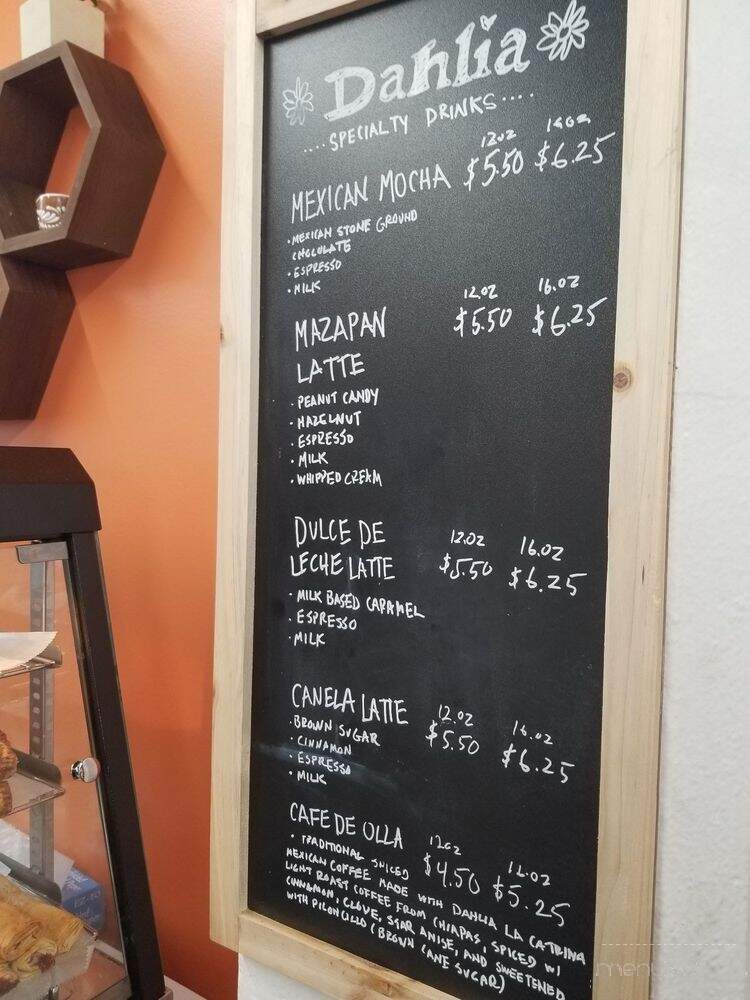 Dahlia
....SPECIALTY DRINKS....
12oz 16oz
MEXICAN MOCHA $5.50 $6.25
• MEXICAN STONE GROUND
CHOCOLATE
• ESPRESSO
• MILK
12oz 16.oz
MAZAPAN $5.50 $6.25
LATTE
• PEANUT CANDY
• HAZELNUT
• ESPRESSO
• MILK
• WHIPPED CREAM
DULCE DE 12oz 16.oz
LECHE LATTE $5.50 $6.25
• MILK BASED CARAMEL
• ESPRESSO
• MILK
CANELA LATTE 12.oz 16.oz
• BROWN SUGAR $5.50 $6.25
• CINNAMON
• ESPRESSO
• MILK
CAFE DE OLLA 12oz 16.oz
• TRADITIONAL SPICED $4.50 $5.25
MEXICAN COFFEE MADE WITH DAHLIA LA CATRINA
LIGHT ROAST COFFEE FROM CHIAPAS, SPICED W/
CINNAMON, CLOVE, STAR ANISE, AND SWEETENED
WITH PILONCILLO (BROWN CANE SUGAR)